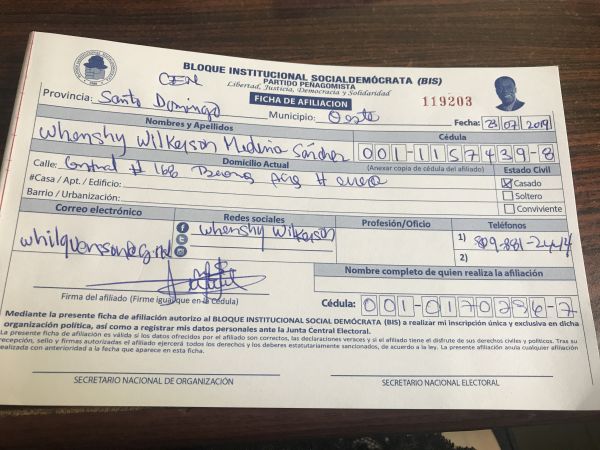 BLOQUE INSTITUCIONAL SOCIALDEMÓCRATA (BIS)
PARTIDO PENAGOMISTA
Libertad, Justicia, Democracia y Solidaridad
CEN
FICHA DE AFILIACION
119203
Provincia: Santo Domingo Municipio: Oeste Fecha: 23 07 2019
Nombres y Apellidos Cédula
Whenshy Wilkerson Medina Sánchez 001-1157439-8
(Anexar copia de cédula del afiliado)
Domicilio Actual Estado Civil
Calle: Central # 168
#Casa / Apt. / Edificio:
Barrio / Urbanización:
Casado
Soltero
Conviviente
Correo electrónico Redes sociales Profesión/Oficio Teléfonos
Whenshy Wilkerson
1) 809-881-2444
2)
Nombre completo de quien realiza la afiliación
Firma del afiliado (Firme igual que en la cédula)
Cédula: 001-0170296-7
Mediante la presente ficha de afiliación autorizo al BLOQUE INSTITUCIONAL SOCIAL DEMÓCRATA (BIS) a realizar mi inscripción única y exclusiva en dicha
organización política, así como a registrar mis datos personales ante la Junta Central Electoral.
La presente ficha de afiliación es válida si los datos ofrecidos por el afiliado son correctos, las declaraciones veraces y si el afiliado tiene el disfrute de sus derechos civiles y políticos. Tras su
recepción, sello y firmas autorizadas el afiliado ejercerá todos los derechos y los deberes estatutariamente sancionados, de acuerdo a la ley. La presente afiliación anula cualquier afiliación
realizada con anterioridad a la fecha que aparece en esta ficha.
SECRETARIO NACIONAL DE ORGANIZACIÓN SECRETARIO NACIONAL ELECTORAL